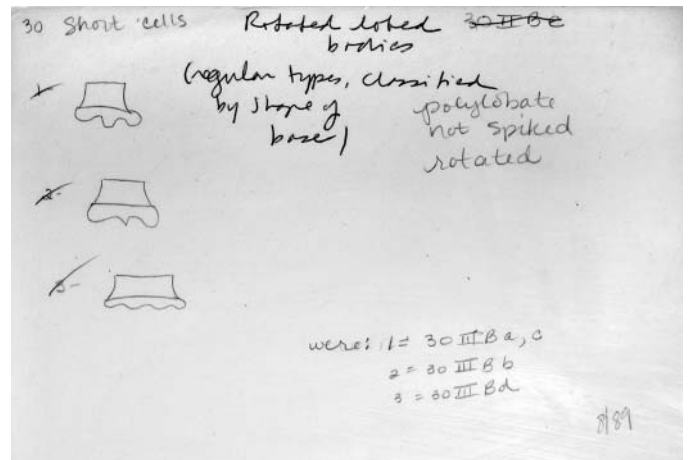 30 Short cells
Rotated lobed
bodies
30 III Be
(regular types, classified
by shape of
base)
polylobate
not spiked
rotated
1-
2-
3-
were: 1 = 30 III B a, c
2 = 30 III B b
3 = 30 III B d
8/89